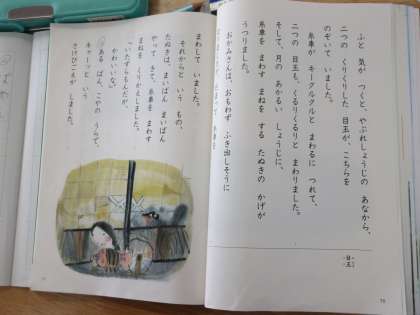 ふと 気が つくと、やぶれしょうじの あなから、
二つの くりくりした 目玉が、こちらを
のぞいて いました。
糸車が キークルクルと まわるに つれて、
二つの 目玉も、くるりくるりと まわりました。
そして、月の あかるい しょうじに、
糸車を まわす まねを する たぬきの かげが
うつりました。
おかみさんは、おもわず ふき出しそうに
なりましたが、だまって 糸車を
目玉
まわして いました。
それからと いう もの、
たぬきは、まいばん まいばん
やって きて、糸車を まわす
まねを くりかえしました。
「いたずらもんだが、
かわいいな。」
ある ばん、こやの うらで、
キャーッと いう
さけびごえが しました。